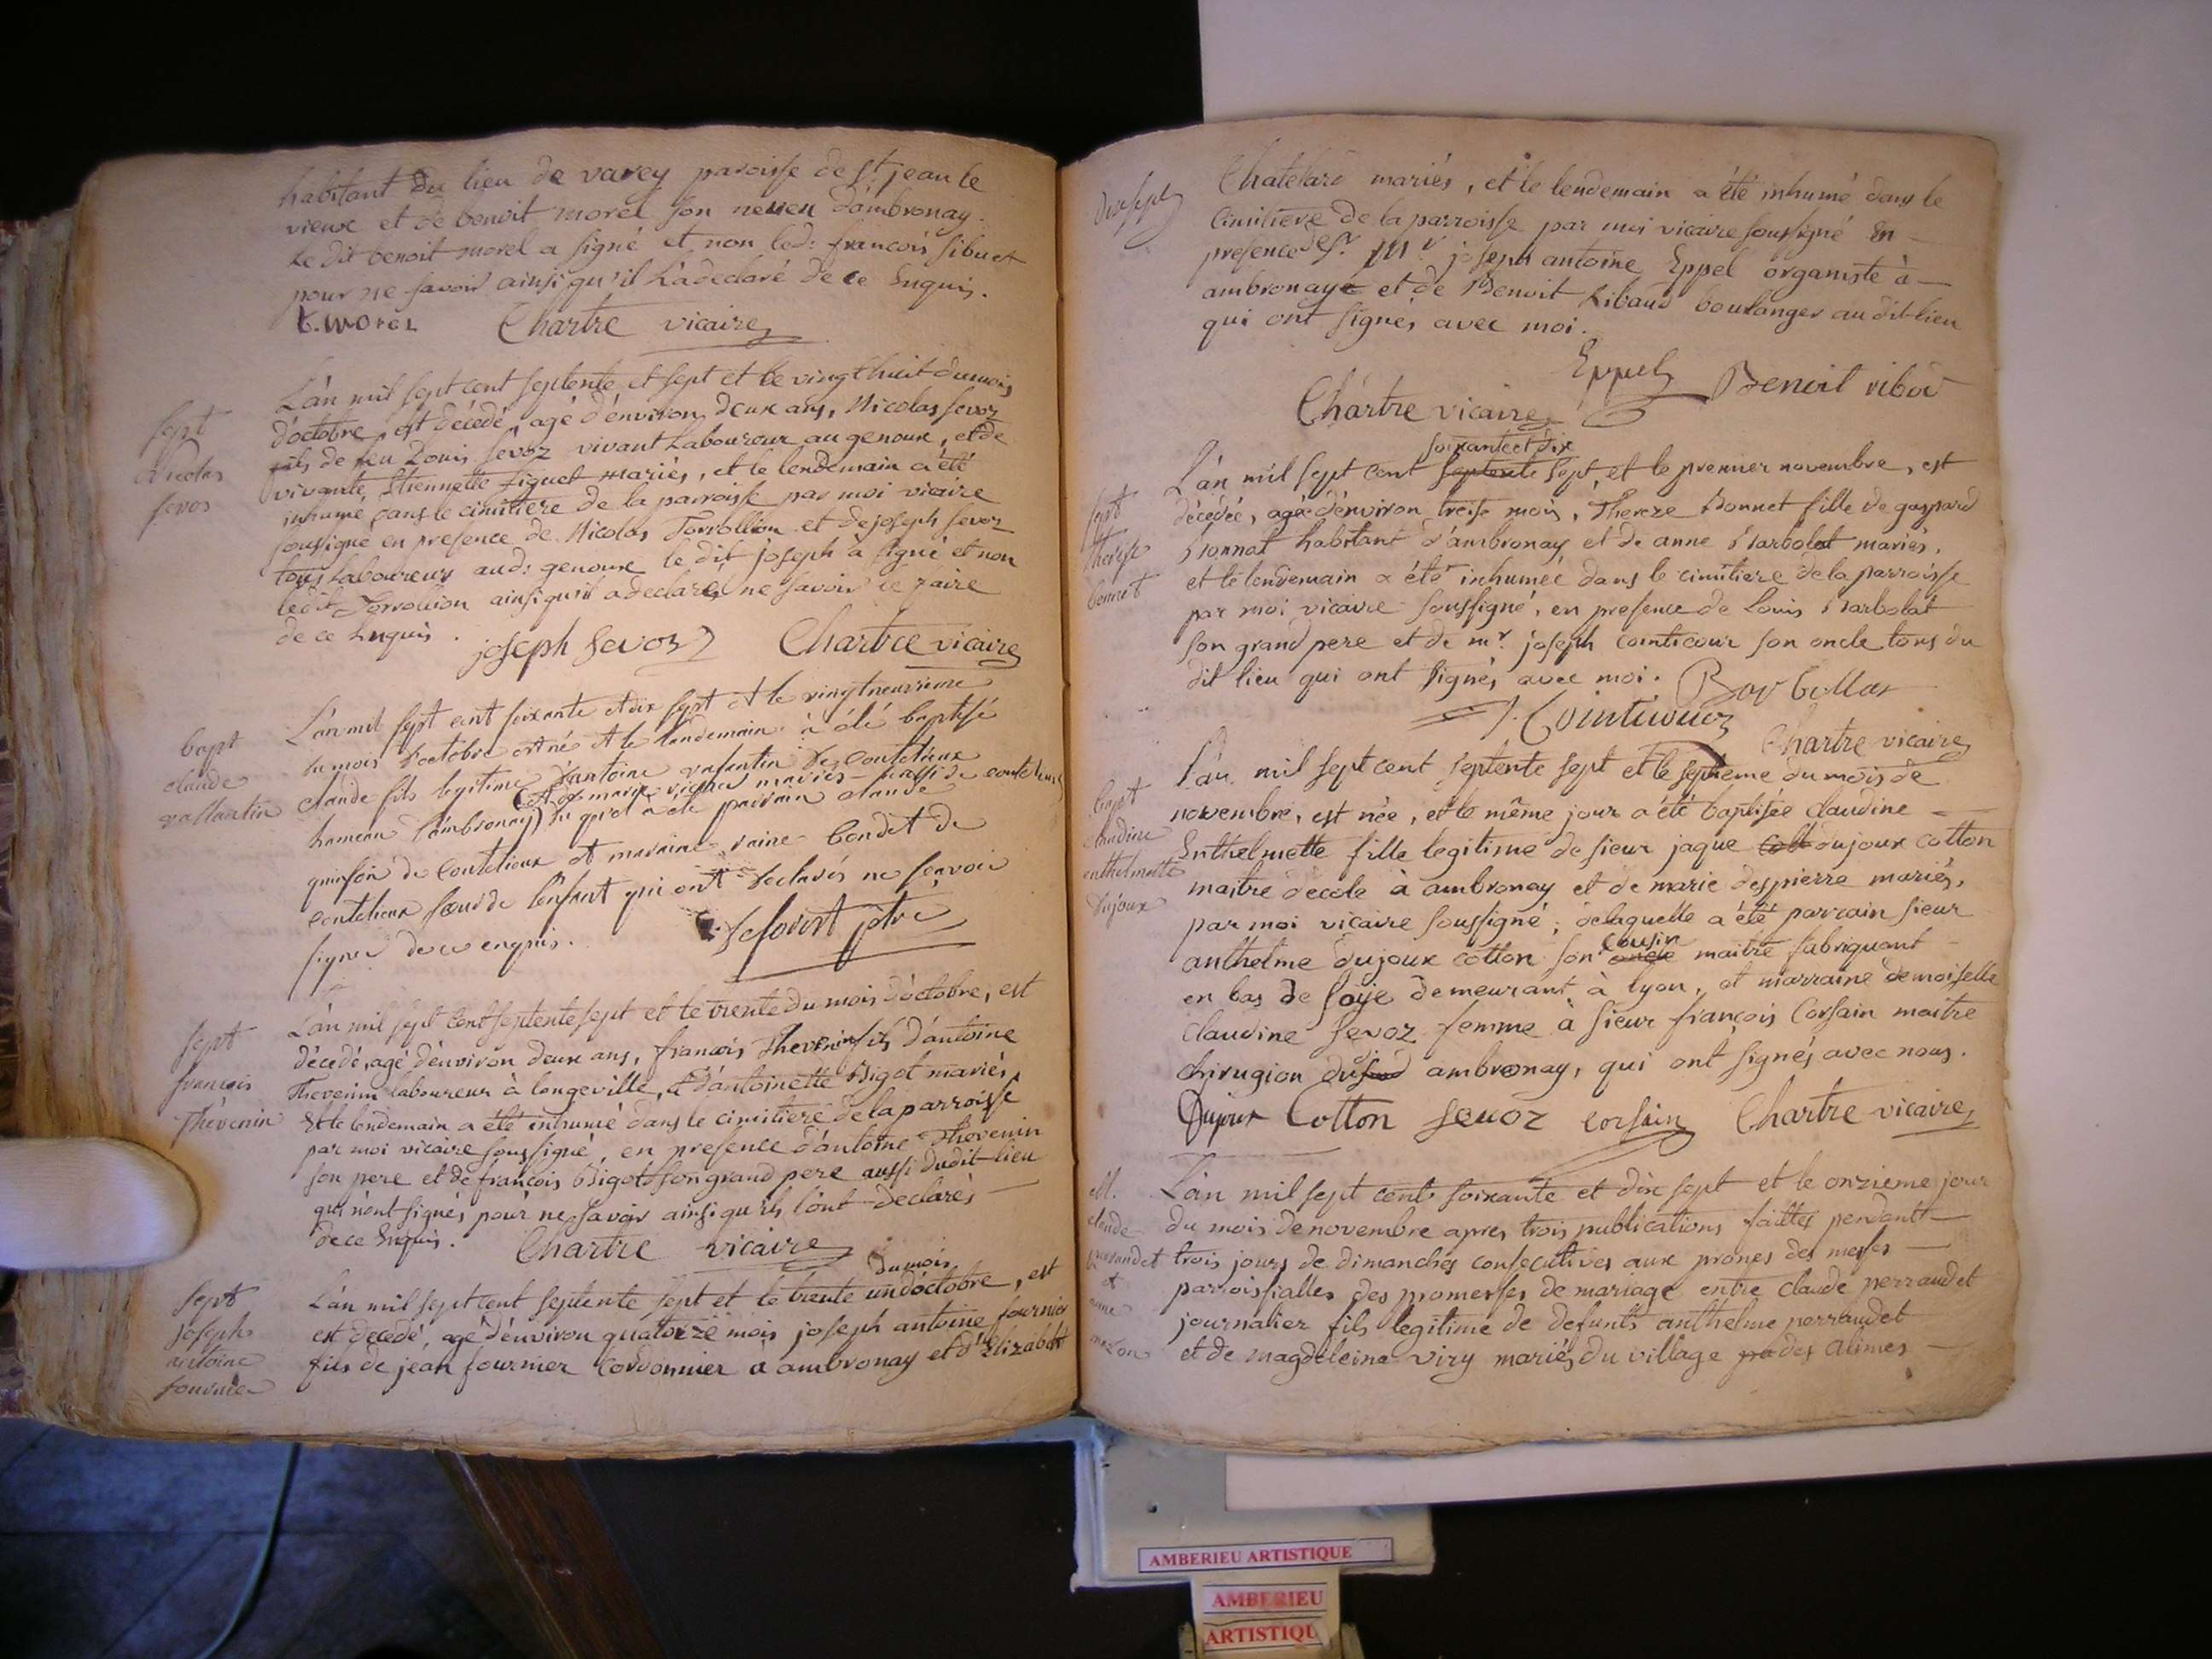 habitant du lieu de varey paroisse de st jean le
vieux et de benoit morel son neveu d'ambronay.
Le dit benoit morel a signé et non led: francois sibuet
pour ne savoir ainsi qu'il l'a declaré de ce Enquis.
b. morel Chartre vicaire
sept
Nicolas
sevos
L'an mil sept cent septente et sept et le vingt huit du mois
d'octobre est décédé, agé d'énviron deux ans, Nicolas Sevoz
fils de feu Louis Sevoz vivant Laboureur au genoux, et de
vivante Thiennette figuet mariés, et le lendemain a été
inhumé dans le cimitiere de la parroisse par moi vicaire
soussigné en presence de Nicolas Torrollion et de joseph Sevoz
tous Laboureurs aud: genoux le dit joseph a signé et non
ledit Torrollion ainsi qu'il a declaré ne savoir le faire
de ce Enquis.
joseph Sevoz Chartre vicaire
bapt
claude
vallantin
L'an mil sept cent soixante et dix sept et le vingt neuvieme
du mois d'octobre est né et le landemain à été baptisé
claude fils legitime d'antoine valentin de coutelieux
(et de marie vignes mariés aussi de coutelieux
hameau d'ambronay) du quel a été parrain claude
quinson de Coutelieux et maraine raine bondet de
coutelieux sœur de l'enfant qui ont declarés ne sçavoir
signer de ce enquis.
Defovest ptre
sept
francois
Thévenin
L'an mil sept cent septente sept et le trente du mois d'octobre, est
décédé, agé d'énviron deux ans, francois Thevenin fils d'antoine
Thevenin laboureur à longeville, et d'antoinette Bigot mariés,
Et le lendemain a été inhumé dans le cimitiere de la parroisse
par moi vicaire soussigné, en presence d'antoine Thevenin
son pere et de francois Bigot son grand pere aussi dudit lieu
qui n'ont signés pour ne savoir ainsi qu'ils l'ont declarés
de ce Enquis. Chartre vicaire
sept
joseph
antoine
fournier
du mois
L'an mil sept cent septente sept et le trente un d'octobre, est
est decedé, agé d'énviron quatorze mois joseph antoine fournier
fils de jean fournier Cordonnier à ambronay et d'Elizabeth
dixsept
Chatelard mariés, et le lendemain a été inhumé dans le
Cimitiere de la parroisse par moi vicaire soussigné En
presence de Sr. Mr. joseph antoine Eppel organiste à
ambronay et de Benoit Ribaud boulanger audit lieu
qui ont signés avec moi.
Eppel Benoit ribod
Chartre vicaire
sept
therese
bonnet
soixante et dix
L'an mil sept cent septente sept, et le premier novembre, est
décédée, agée d'énviron treise mois, Thereze Bonnet fille de gaspard
Bonnat habitant d'ambronay et de anne Barbolat mariés,
et le lendemain a été inhumée dans le cimitiere de la parroisse
par moi vicaire soussigné, en presence de Louis Barbolat
son grand pere et de mr. joseph cointicour son oncle tous du
dit lieu qui ont signés avec moi. Barbollat
J. Cointicour
Chartre vicaire
bapt
claudine
enthelmette
dujoux
L'an mil sept cent septente sept et le septieme du mois de
novembre, est née, et le même jour a été baptisée claudine
Enthelmette fille legitime de sieur jaque cott dujoux cotton
maitre d'ecole à ambronay et de marie despierre mariés,
par moi vicaire soussigné; de laquelle a été parrain sieur
cousin
anthelme dujoux cotton son oncle maitre fabriquant
en bas de soye demeurant à lyon, et marraine demoiselle
claudine Sevoz femme à sieur françois Corsain maitre
chirugion du ambronay, qui ont signés avec nous.
Dujoux Cotton Sevoz corsain Chartre vicaire
M.
claude
perraudet
et
anne
L'an mil sept cent soixante et dix sept et le onzieme jour
du mois de novembre apres trois publications faittes pendant
trois jours de dimanches consecutives aux prones des messes
parroissialles des promesses de mariage entre claude perraudet
journalier fils legitime de defunts anthelme perraudet
et de magdeleine viry mariés du village des alimes
AMBERIEU ARTISTIQUE
AMBERIEU
ARTISTIQU